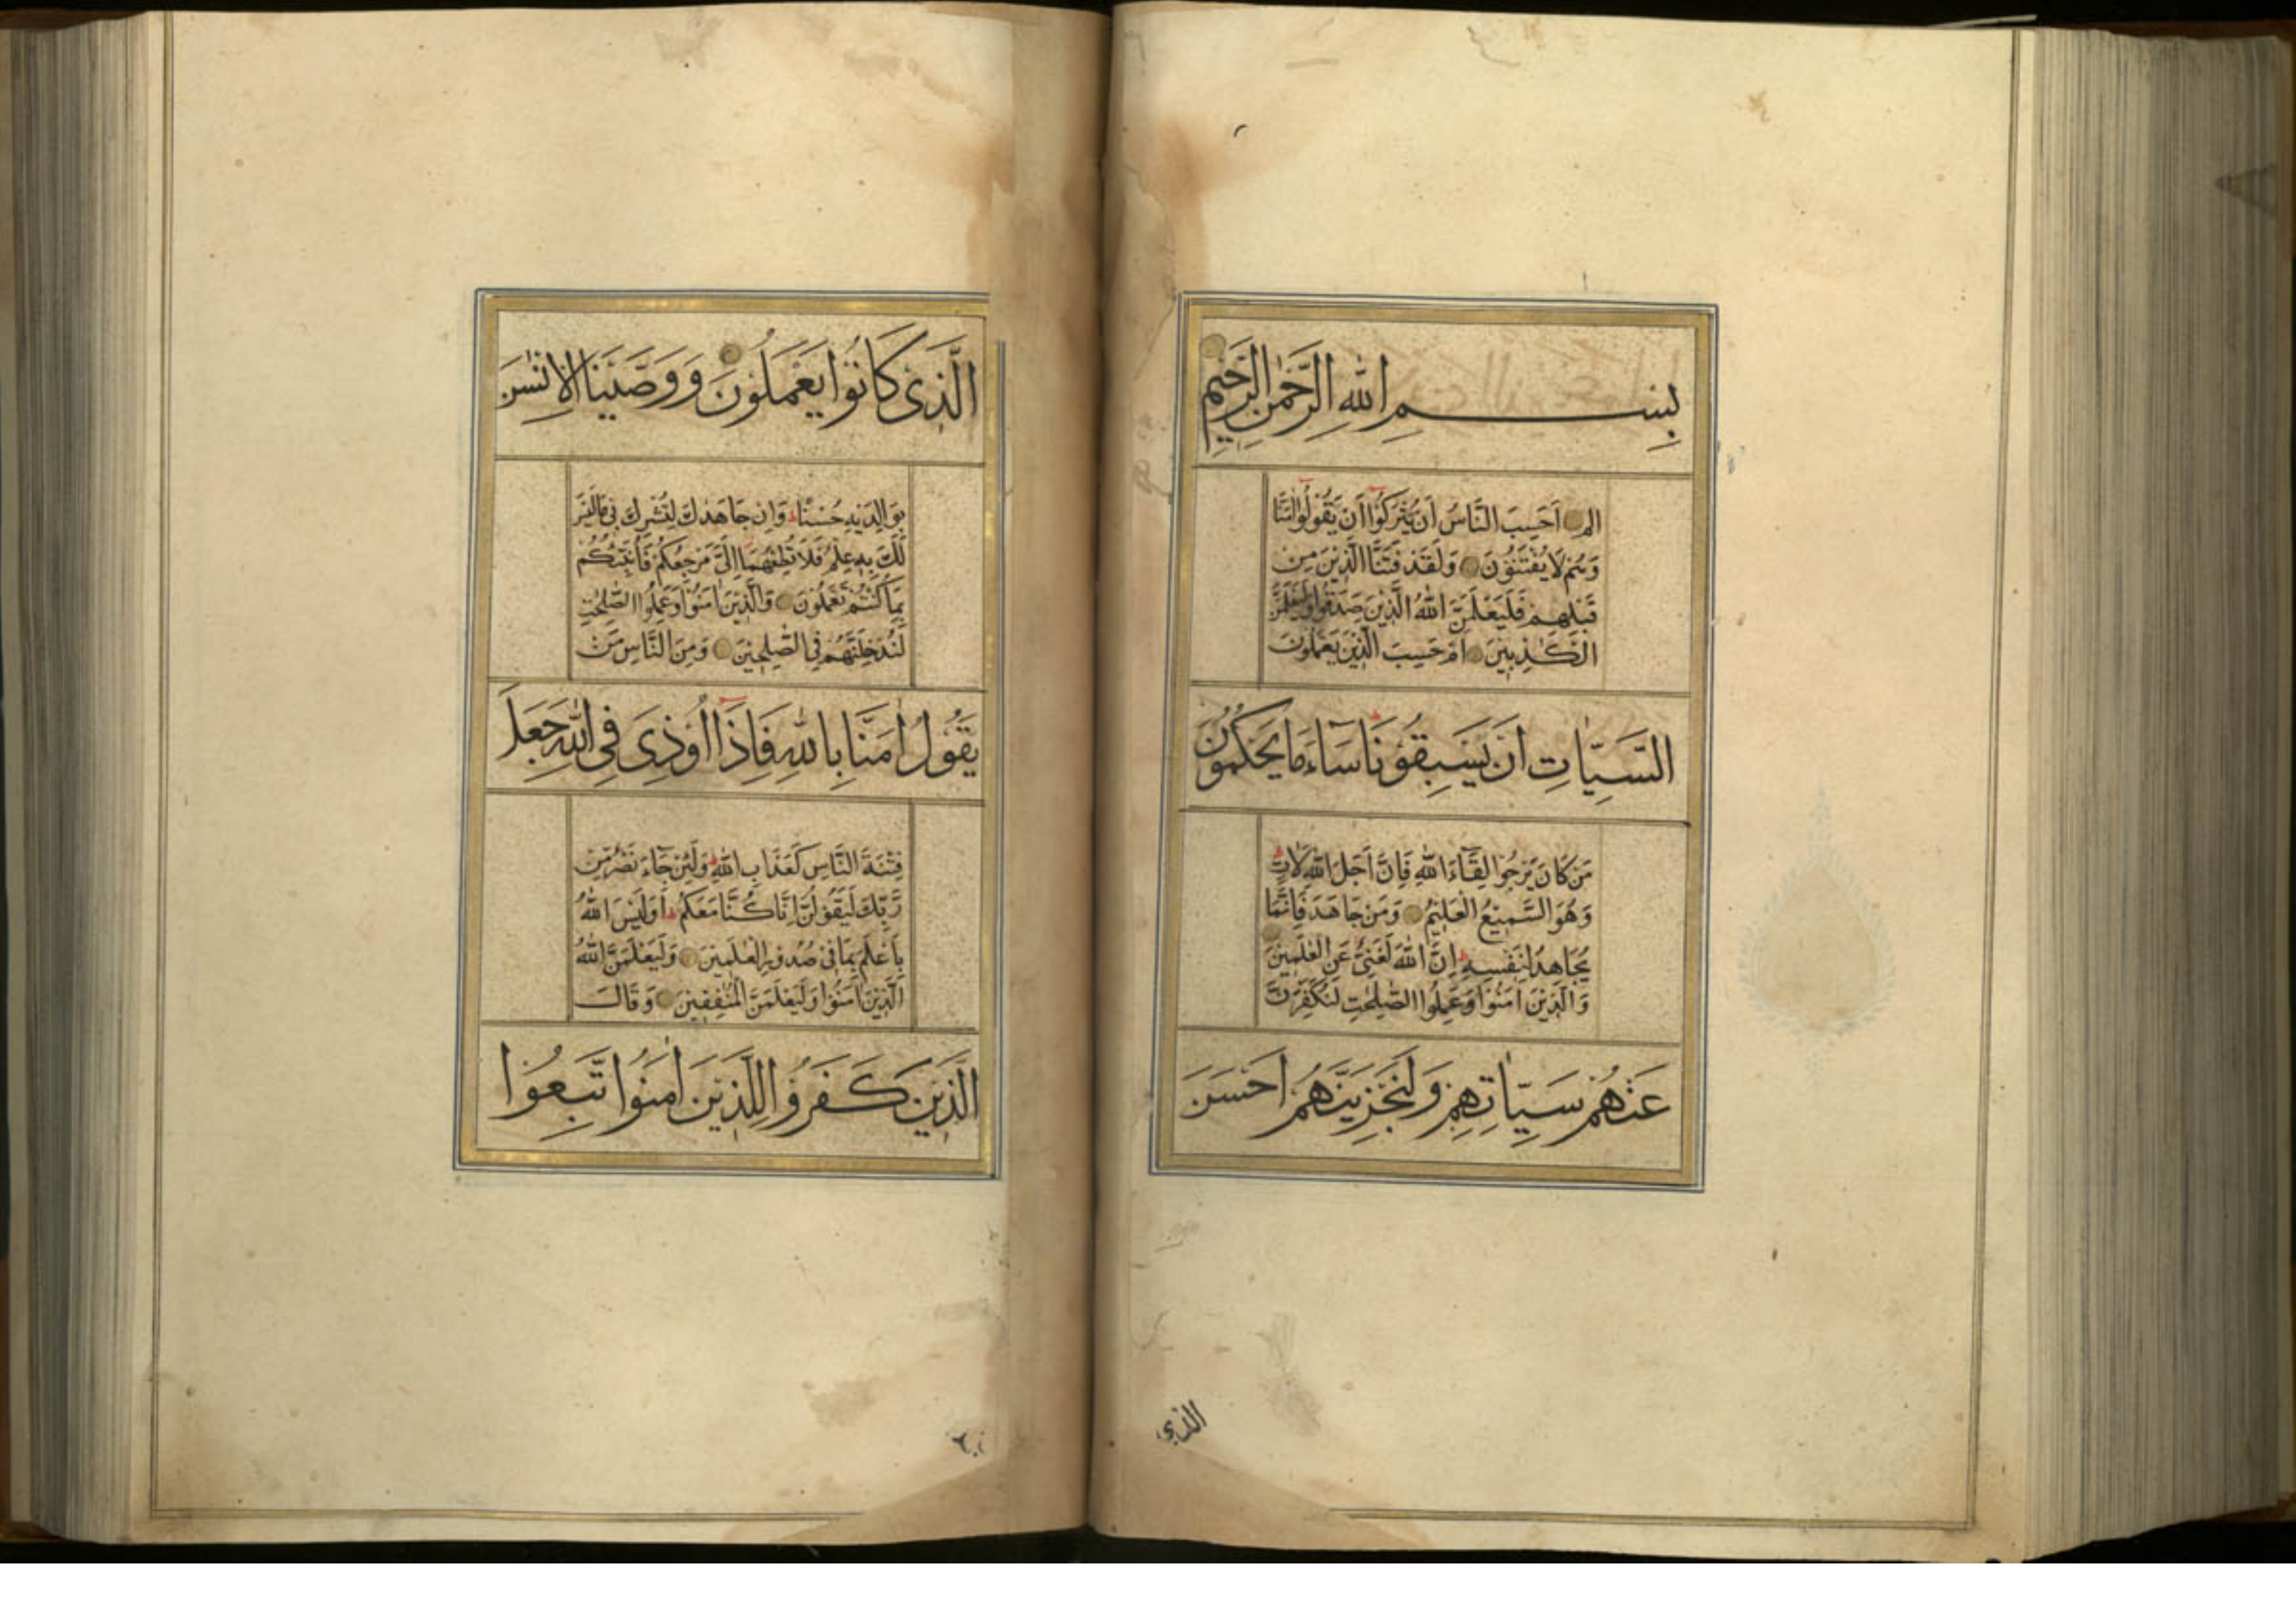 بِسْمِ اللهِ الرَّحْمٰنِ الرَّحِيْمِ
الم اَحَسِبَ النَّاسُ اَنْ يُتْرَكُوْا اَنْ يَقُوْلُوْا اٰمَنَّا
وَهُمْ لَا يُفْتَنُوْنَ وَلَقَدْ فَتَنَّا الَّذِيْنَ مِنْ
قَبْلِهِمْ فَلَيَعْلَمَنَّ اللهُ الَّذِيْنَ صَدَقُوْا وَلَيَعْلَمَنَّ
الْكٰذِبِيْنَ اَمْ حَسِبَ الَّذِيْنَ يَعْمَلُوْنَ
السَّيِّاٰتِ اَنْ يَسْبِقُوْنَا سَاءَ مَا يَحْكُمُوْنَ
مَنْ كَانَ يَرْجُوْا لِقَاءَ اللهِ فَاِنَّ اَجَلَ اللهِ لَاٰتٍ
وَهُوَ السَّمِيْعُ الْعَلِيْمُ وَمَنْ جَاهَدَ فَاِنَّمَا
يُجَاهِدُ لِنَفْسِهٖ اِنَّ اللهَ لَغَنِىٌّ عَنِ الْعٰلَمِيْنَ
وَالَّذِيْنَ اٰمَنُوْا وَعَمِلُوا الصّٰلِحٰتِ لَنُكَفِّرَنَّ
عَنْهُمْ سَيِّاٰتِهِمْ وَلَنَجْزِيَنَّهُمْ اَحْسَنَ
الذي
الَّذِىْ كَانُوْا يَعْمَلُوْنَ وَوَصَّيْنَا الْاِنْسٰنَ
بِوَالِدَيْهِ حُسْنًا وَاِنْ جَاهَدٰكَ لِتُشْرِكَ بِىْ مَا لَيْسَ
لَكَ بِهٖ عِلْمٌ فَلَا تُطِعْهُمَا اِلَىَّ مَرْجِعُكُمْ فَاُنَبِّئُكُمْ
بِمَا كُنْتُمْ تَعْمَلُوْنَ وَالَّذِيْنَ اٰمَنُوْا وَعَمِلُوا الصّٰلِحٰتِ
لَنُدْخِلَنَّهُمْ فِى الصّٰلِحِيْنَ وَمِنَ النَّاسِ مَنْ
يَقُوْلُ اٰمَنَّا بِاللهِ فَاِذَا اُوْذِىَ فِى اللهِ جَعَلَ
فِتْنَةَ النَّاسِ كَعَذَابِ اللهِ وَلَئِنْ جَاءَ نَصْرٌ مِّنْ
رَّبِّكَ لَيَقُوْلُنَّ اِنَّا كُنَّا مَعَكُمْ اَوَلَيْسَ اللهُ
بِاَعْلَمَ بِمَا فِىْ صُدُوْرِ الْعٰلَمِيْنَ وَلَيَعْلَمَنَّ اللهُ
الَّذِيْنَ اٰمَنُوْا وَلَيَعْلَمَنَّ الْمُنٰفِقِيْنَ وَقَالَ
الَّذِيْنَ كَفَرُوْا لِلَّذِيْنَ اٰمَنُوا اتَّبِعُوْا